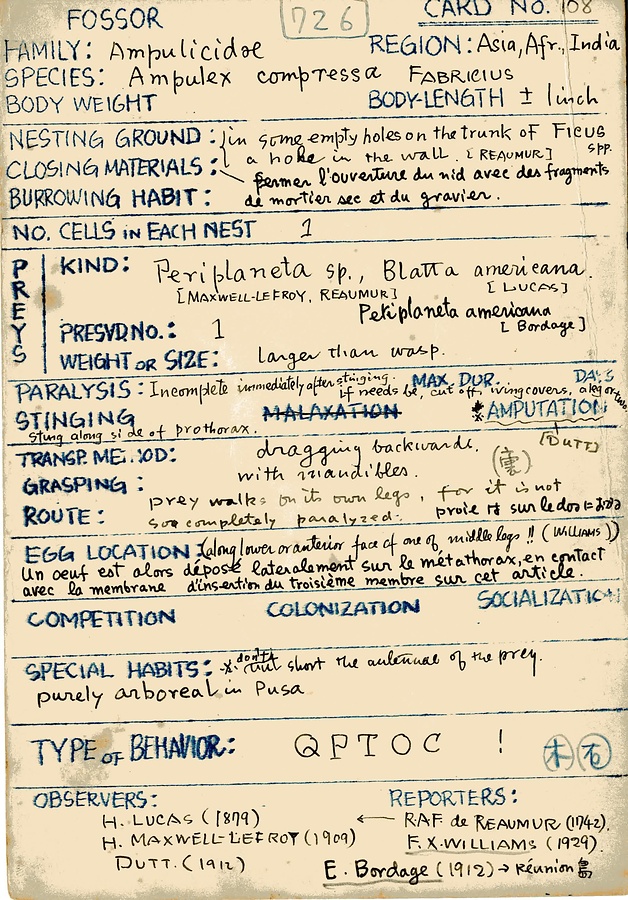 FOSSOR
726
CARD NO. 108
FAMILY: Ampulicidae
REGION: Asia, Afr., India
SPECIES: Ampulex compressa FABRICIUS
BODY WEIGHT
BODY-LENGTH ± 1 inch
NESTING GROUND: in some empty holes on the trunk of FICUS spp.
CLOSING MATERIALS: a hole in the wall. [REAUMUR]
fermer l'ouverture du nid avec des fragments
BURROWING HABIT: de mortier sec et du gravier.
NO. CELLS in EACH NEST 1
PREYS
KIND: Periplaneta sp., Blatta americana.
[MAXWELL-LEFROY, REAUMUR] [LUCAS]
Periplaneta americana
[Bordage]
PRESVD NO.: 1
WEIGHT or SIZE: larger than wasp.
PARALYSIS: Incomplete immediately after stinging. MAX. DUR. DAYS
if needs be, cut off wing covers, a leg or two
STINGING MALAXATION * AMPUTATION
sting along side of prothorax. [DUTT]
TRANSP. METHOD: dragging backwards.
GRASPING: with mandibles.
prey walks on its own legs, for it is not
ROUTE: so completely paralyzed. proie
EGG LOCATION: (along lower or anterior face of one of middle legs!! (WILLIAMS))
Un oeuf est alors déposé lateralement sur le métathorax, en contact
avec la membrane d'insertion du troisième membre sur cet article.
COMPETITION COLONIZATION SOCIALIZATION
SPECIAL HABITS: * don't short the antennae of the prey.
purely arboreal in Pusa
TYPE of BEHAVIOR: QPTOC ! 木 石
OBSERVERS: REPORTERS:
H. LUCAS (1879) ← RAF. de REAUMUR (1742).
H. MAXWELL-LEFROY (1909) F.X. WILLIAMS (1929).
DUTT. (1912) E. Bordage (1912) → Réunion 島